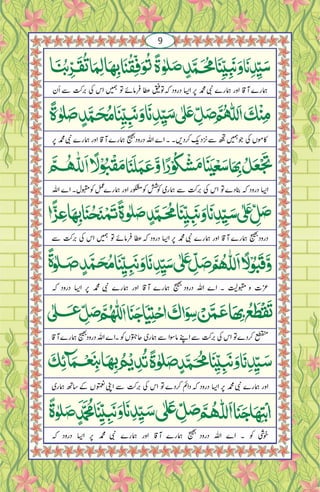 9
سَيِّدِنَا وَنَبِيِّنَا مُحَمَّدٍ صَلٰوةً تُوَفِّقُنَا بِهَا لِمَا يُقَرِّبُنَا
ہمارے آقا اور ہمارے نبی محمد پر ایسا درود کہ توفیق عطا فرمائے تو ہمیں اس کی برکت سے اُن
مِنْكَ اَللّٰهُمَّ صَلِّ عَلٰى سَيِّدِنَا وَنَبِيِّنَا مُحَمَّدٍ صَلٰوةً
کاموں کی جو ہمیں تجھ سے نزدیک کردیں۔ اے اللہ درود بھیج ہمارے آقا اور ہمارے نبی محمد پر
تَجْعَلُ بِهَا سَعْيَنَا مَشْكُوْرًا وَّعَمَلَنَا مَقْبُوْلًا اَللّٰهُمَّ
ایسا درود کہ بنادے تو اس کی برکت سے ہماری کوشش کو مشکور اور ہمارے عمل کو مقبول۔ اے اللہ
صَلِّ عَلٰى سَيِّدِنَا وَنَبِيِّنَا مُحَمَّدٍ صَلٰوةً تَمْنَحُنَا بِهَا عِزًّا
درود بھیج ہمارے آقا اور ہمارے نبی محمد پر ایسا درود کہ عطا فرمائے تو ہمیں اس کی برکت سے
وَّقَبُوْلًا اَللّٰهُمَّ صَلِّ عَلٰى سَيِّدِنَا وَنَبِيِّنَا مُحَمَّدٍ صَلٰوةً
عزت و مقبولیت ۔ اے اللہ درود بھیج ہمارے آقا اور ہمارے نبی محمد پر ایسا درود کہ
تَقْطَعُ بِهَا عَمَّنْ سِوَاكَ احْتِيَاجَنَا اَللّٰهُمَّ صَلِّ عَلٰى
منقطع کردے تو اس کی برکت سے اپنے ماسوا سے ہماری حاجتوں کو۔ اے اللہ درود بھیج ہمارے آقا
سَيِّدِنَا وَنَبِيِّنَا مُحَمَّدٍ صَلٰوةً تُدِيْمُ بِهَا بِنَعْمَائِكَ
اور ہمارے نبی محمد پر ایسا درود کہ دائم کردے تو اس کی برکت سے اپنی نعمتوں کے ساتھ ہماری
ابْتِهَاجَنَا اَللّٰهُمَّ صَلِّ عَلٰى سَيِّدِنَا وَنَبِيِّنَا مُحَمَّدٍ صَلٰوةً
خوشی کو ۔ اے اللہ درود بھیج ہمارے آقا اور ہمارے نبی محمد پر ایسا درود کہ